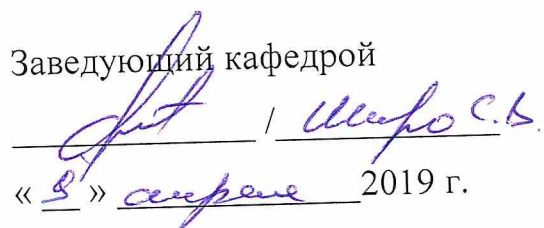 Заведующий кафедрой
/ Широ С.В.
« 9 » апреля 2019 г.